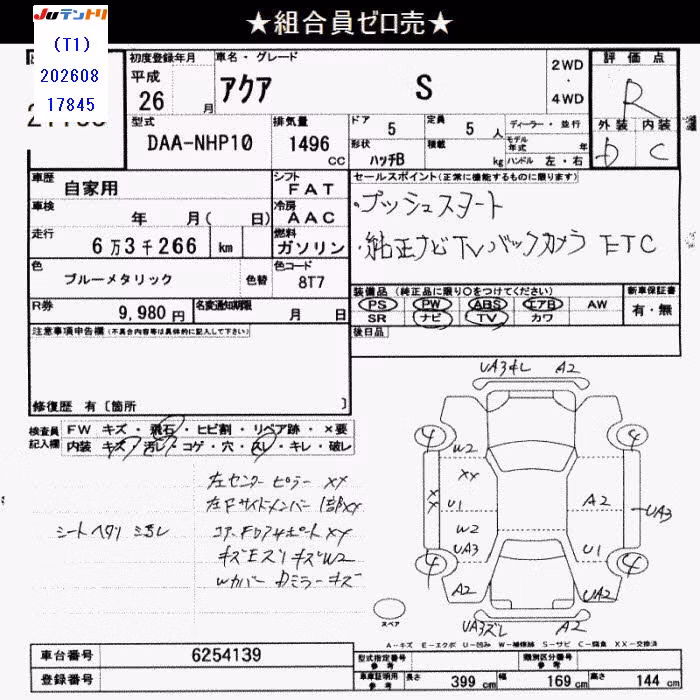 ★組合員ゼロ売★
Juテントリ
(T1)
202608
17845
初度登録年月
平成
26 月
車名・グレード
アクア S
2WD
・
4WD
評価点
R
外装 内装
D C
型式
DAA-NHP10
排気量
1496
CC
ドア 5
定員 5 人
ディーラー・並行
形状 ハッチB
積載 kg
モデル年式 年
ハンドル 左・右
車歴 自家用
シフト
FAT
車検 年 月( 日)
冷房
AAC
走行 6万3千266 km
燃料
ガソリン
色 ブルーメタリック 色替
色コード
8T7
R券 9,980円
名変通知期限 月 日
セールスポイント(正常に機能するものに限ります)
・プッシュスタート
・純正ナビTVバックカメラ ETC
装備品 (純正品に限り○をつけてください)
PS PW ABS エアB AW
SR ナビ TV カワ
新車保証書
有・無
後日品
注意事項申告欄(不具合内容等は具体的に記入して下さい)
修復歴 有〔箇所 〕
検査員
記入欄
FW キズ・飛石・ヒビ割・リペア跡・×要
内装 キズ・汚レ・コゲ・穴・スレ・キレ・破レ
左センターピラー XX
左Fサイドメンバー 1部XX
シートヘタリ
キズW2
Wカバー Dミラーキズ
A2
4 4
W2
XX
XX U1
A2
UA3
W2
UA3
U1
4 4
A2
UA2
A2
スペア
A-キズ E-エクボ U-凹み W-補修跡 S-サビ C-腐食 XX-交換済
車台番号 6254139
登録番号
型式指定番号
参考
類別区分番号
参考
車庫証明用
参考
長さ 399 cm
幅 169 cm
高さ 144 cm